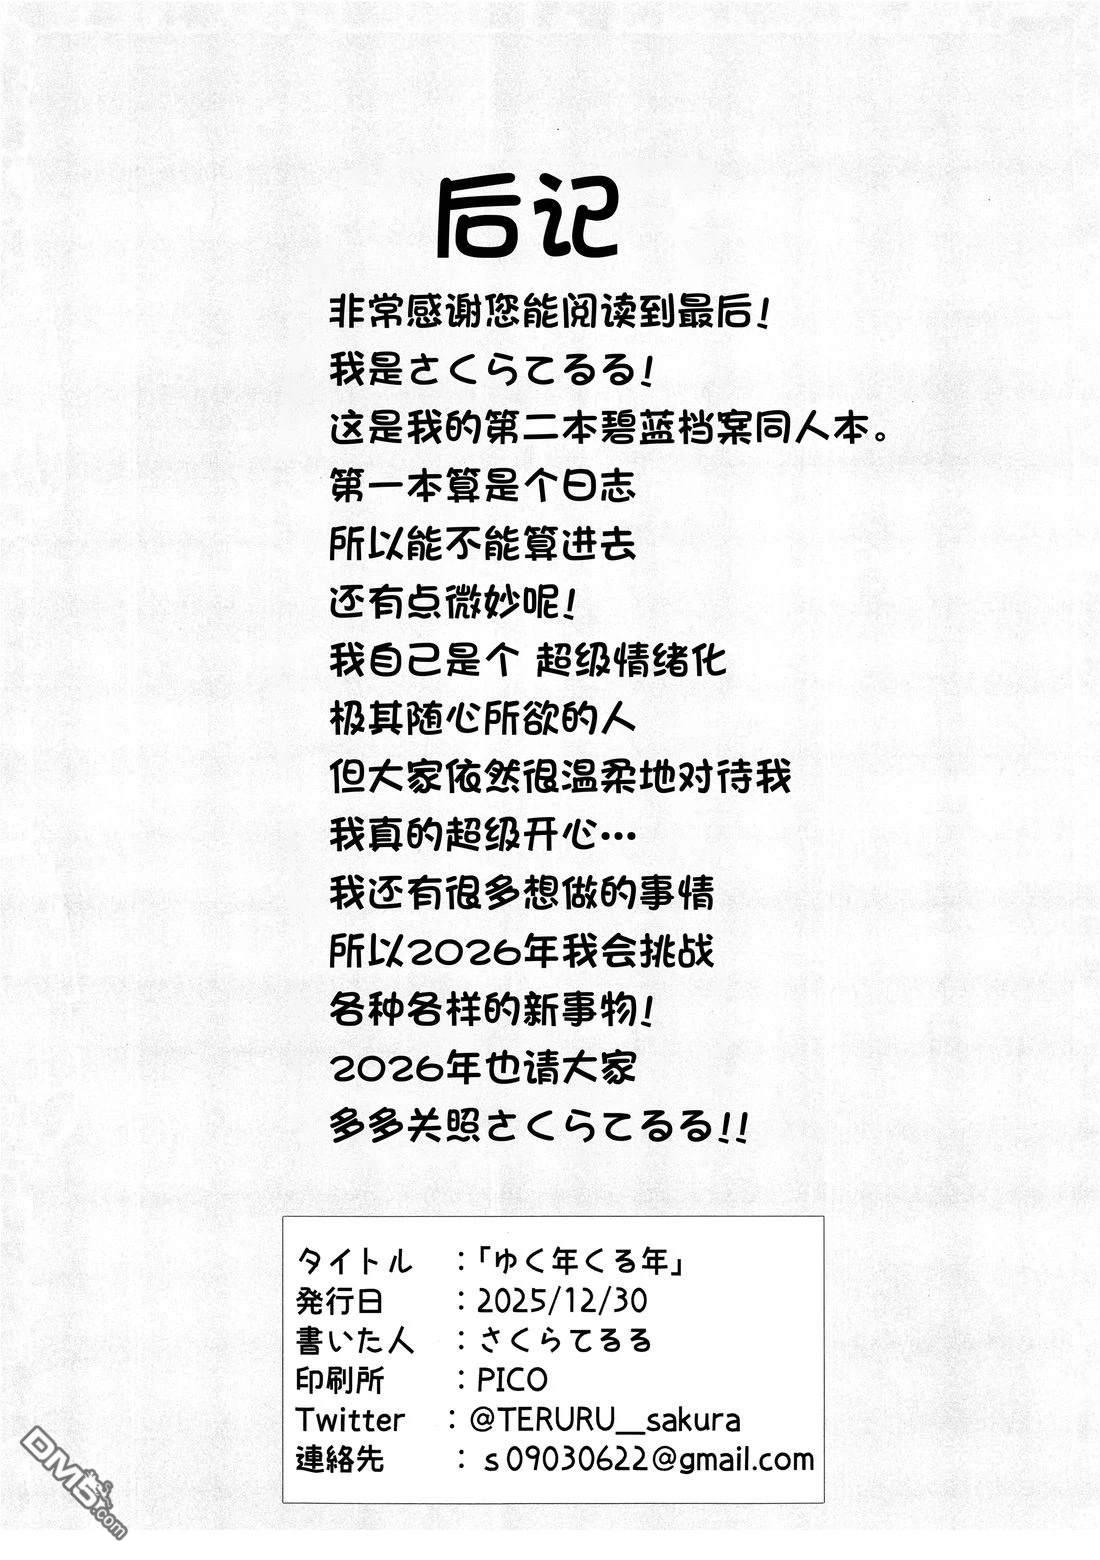 后记
非常感谢您能阅读到最后!
我是さくらてるる!
这是我的第二本碧蓝档案同人本。
第一本算是个日志
所以能不能算进去
还有点微妙呢!
我自己是个 超级情绪化
极其随心所欲的人
但大家依然很温柔地对待我
我真的超级开心…
我还有很多想做的事情
所以2026年我会挑战
各种各样的新事物!
2026年也请大家
多多关照さくらてるる!!
タイトル :「ゆく年くる年」
発行日 :2025/12/30
書いた人 :さくらてるる
印刷所 :PICO
Twitter :@TERURU__sakura
連絡先 :s09030622@gmail.com
DM5.com